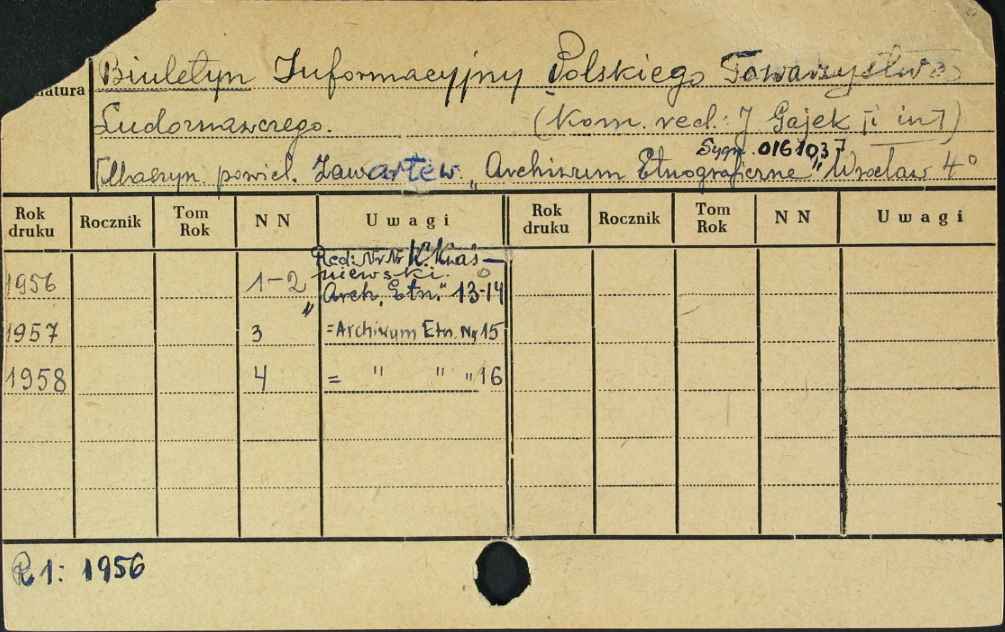 Biuletyn Informacyjny Polskiego Towarzystwa
natura
Ludoznawczego. (Kom. red.: J Gajek [i in])
Sygn. 0161037
[Maszyn. powiel. Zawarte w. "Archiwum Etnograficzne" Wrocław 4°
Rok druku Rocznik Tom Rok N N Uwagi Rok druku Rocznik Tom Rok N N Uwagi
1956 1-2 Red: Nr Nr K. Kwaś-
niewski.
"Arch. Etn." 13-14
1957 3 = Archiwum Etn. Nr 15
1958 4 = " " " 16
R 1: 1956